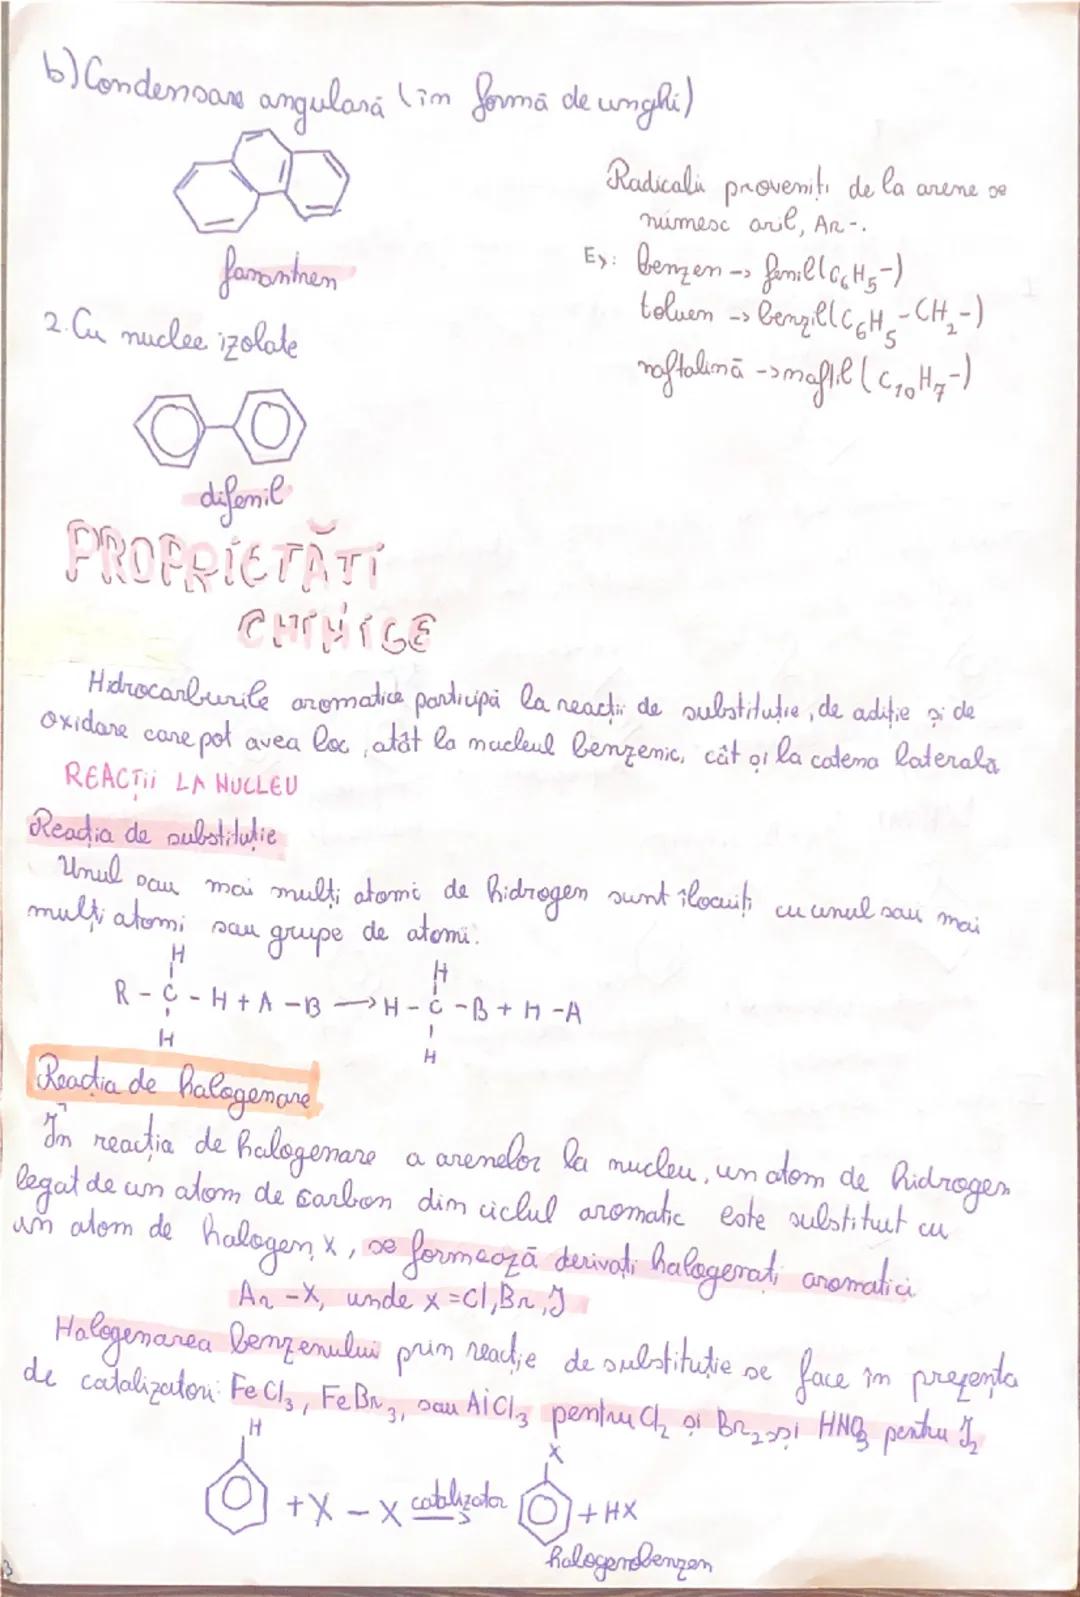 b) Condensare angulară (în formă de unghi)
fenantren
Radicalii proveniți de la arene se
numesc aril, Ar-.
Ex: benzen -> fenil (C₆H₅-)
toluen -> benzil (C₆H₅-CH₂-)
naftalină -> naftil (C₁₀H₇-)
2. Cu nuclee izolate
difenil
PROPRIETĂȚI
CHIMICE
Hidrocarburile aromatice participă la reacții de substituție, de adiție și de
oxidare care pot avea loc, atât la nucleul benzenic, cât și la catena laterală
REACȚII LA NUCLEU
Reacția de substituție
Unul sau mai mulți atomi de hidrogen sunt îlocuiți cu unul sau mai
mulți atomi sau grupe de atomi.
H H
R - C - H + A - B -> H - C - B + H - A
H H
Reacția de halogenare
În reacția de halogenare a arenelor la nucleu, un atom de hidrogen
legat de un atom de carbon din ciclul aromatic este substituit cu
un atom de halogen, X, se formează derivați halogenați aromatici
Ar - X, unde X = Cl, Br, I
Halogenarea benzenului prin reacție de substituție se face în prezența
de catalizatori: FeCl₃, FeBr₃, sau AlCl₃ pentru Cl₂ și Br₂ și HNO₃ pentru I₂
H X
+ X - X catalizator -> + HX
halogenobenzen
3